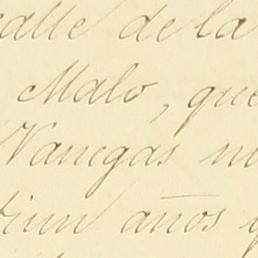 calle de la
Malo, que
Vanegas
años y